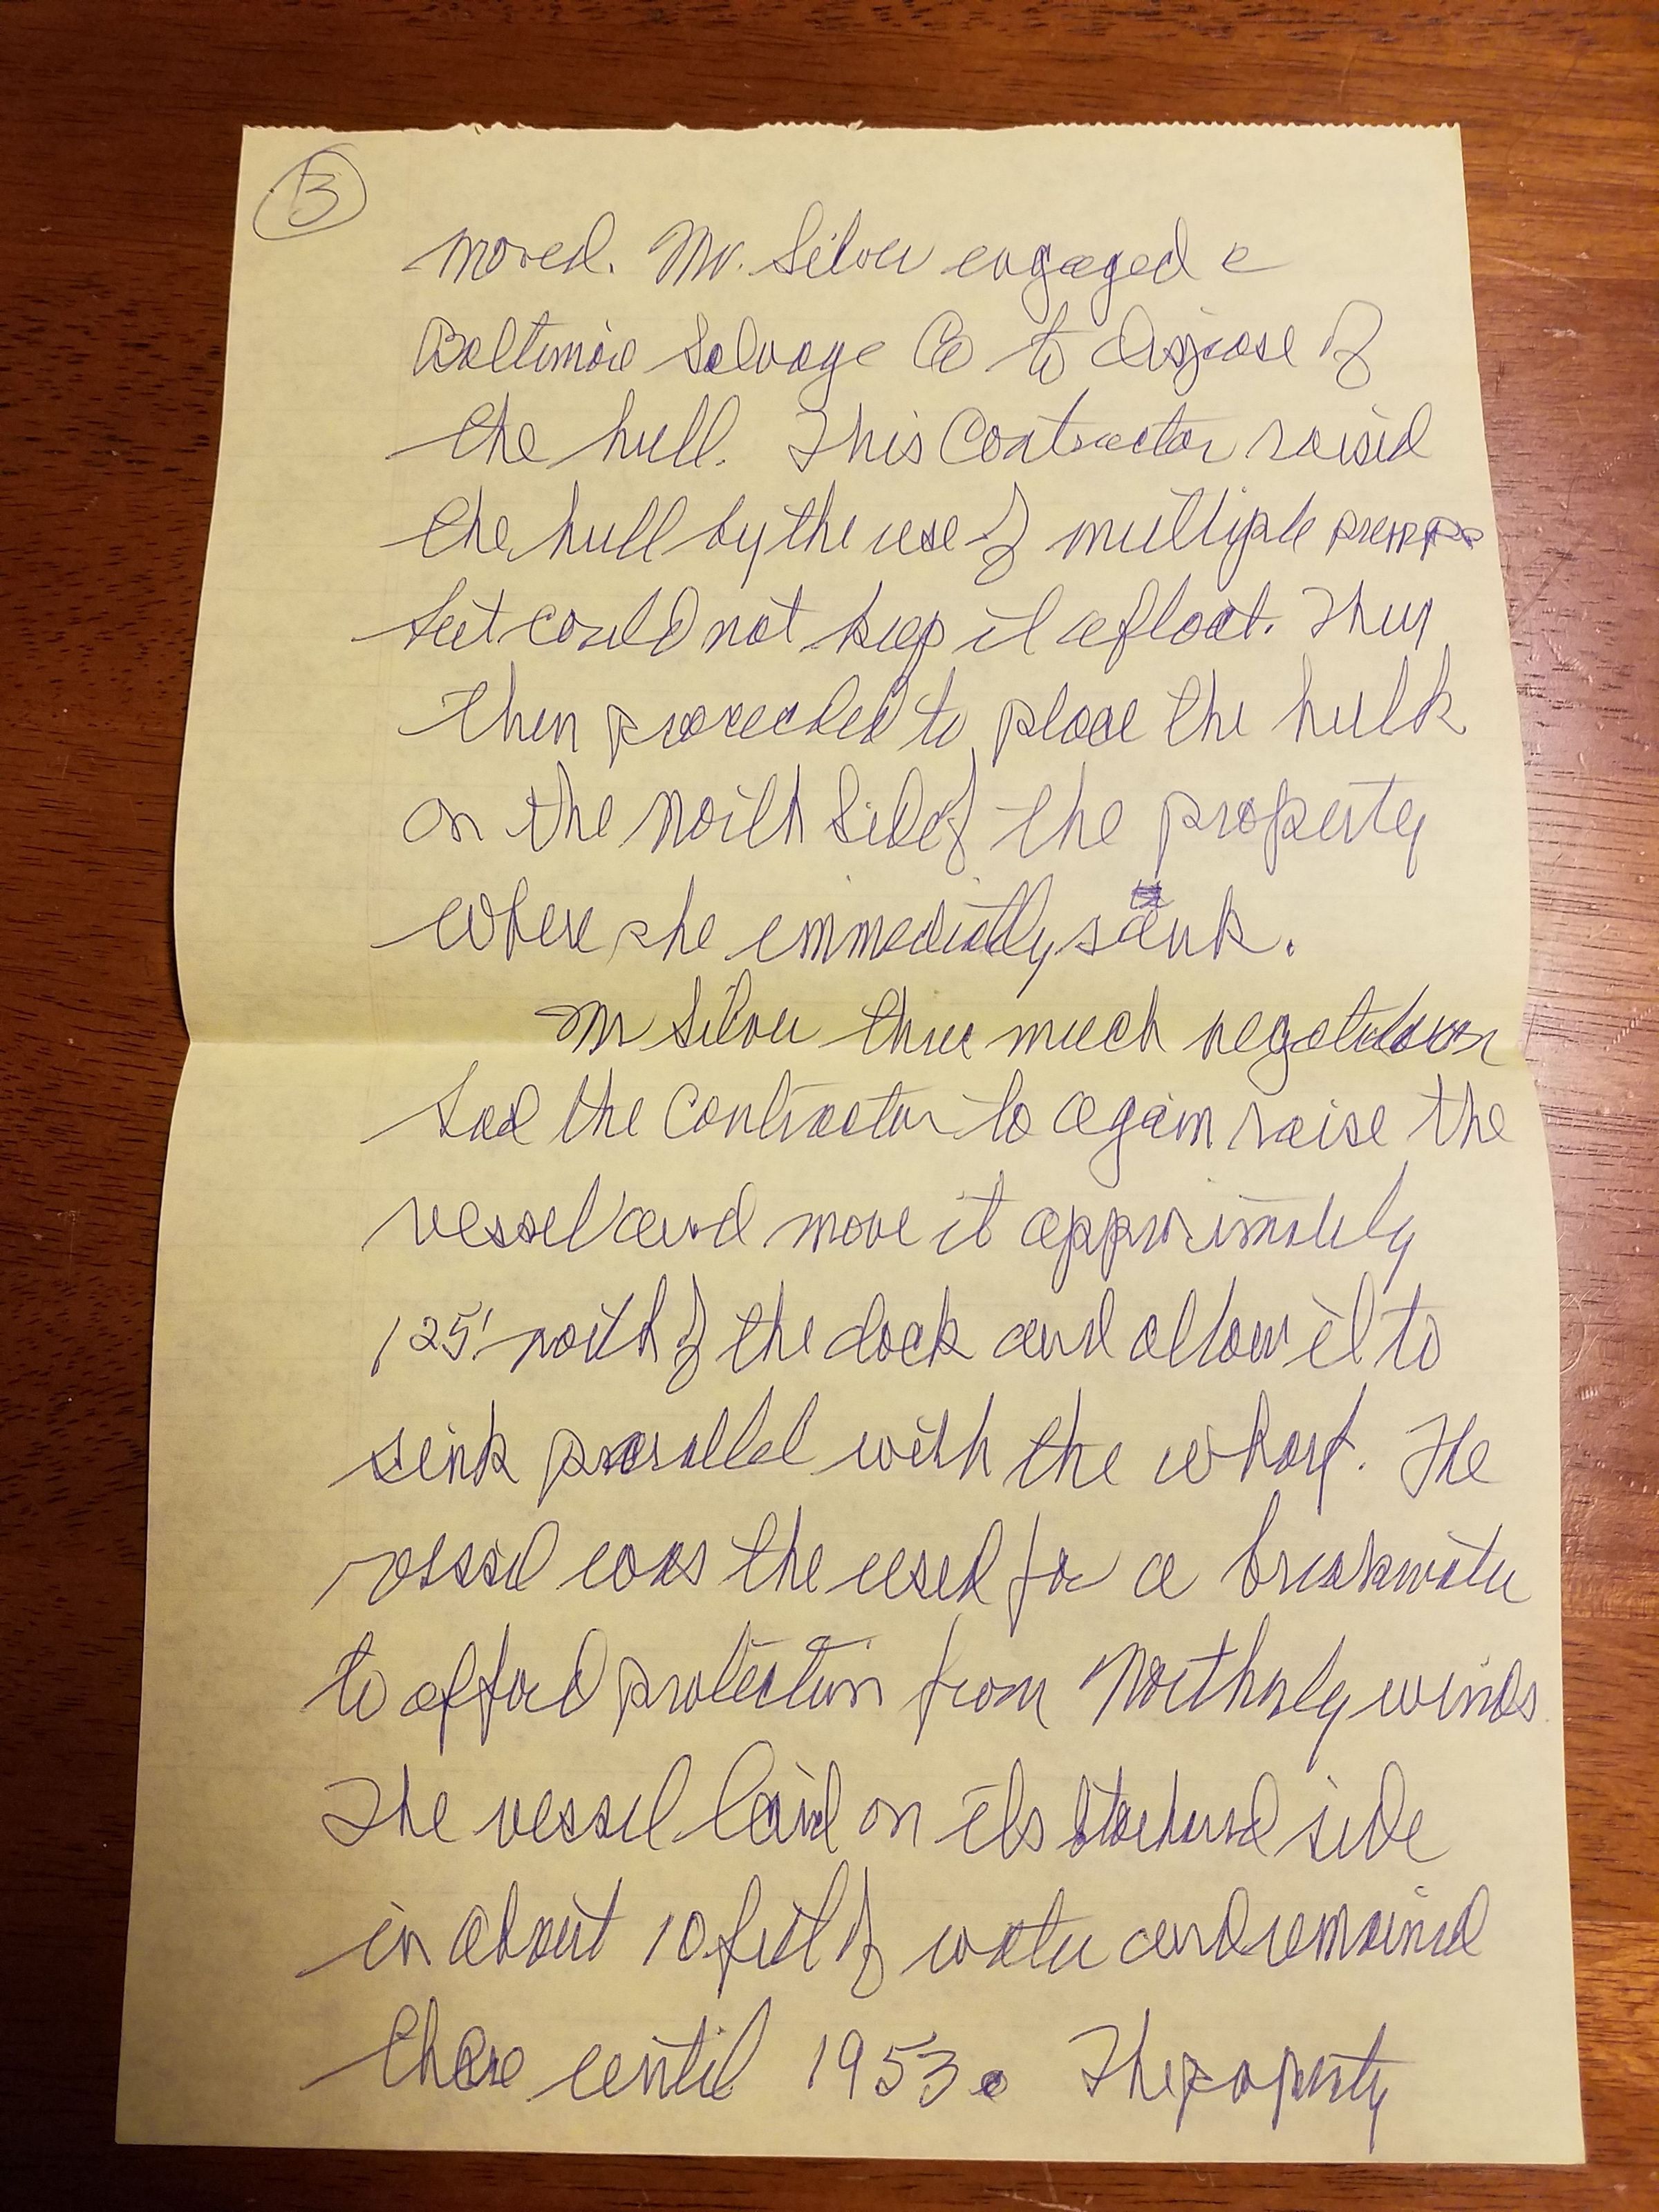 3
moved. Mr. Silver engaged a
Baltimore Salvage Co to dispose of
the hull. This Contractor raised
the hull by the use of multiple pumps
but could not keep it afloat. They
then proceeded to place the hulk
on the north side of the property
where she immediatly sank.
Mr Silver thru much negotiation
had the Contractor to again raise the
vessel and move it approximately
125' north of the dock and allow it to
sink parallel with the wharf. The
vessel was the used for a breakwater
to afford protection from Northerly winds
The vessel laid on its starboard side
in about 10 feet of water and remained
there until 1953. The property